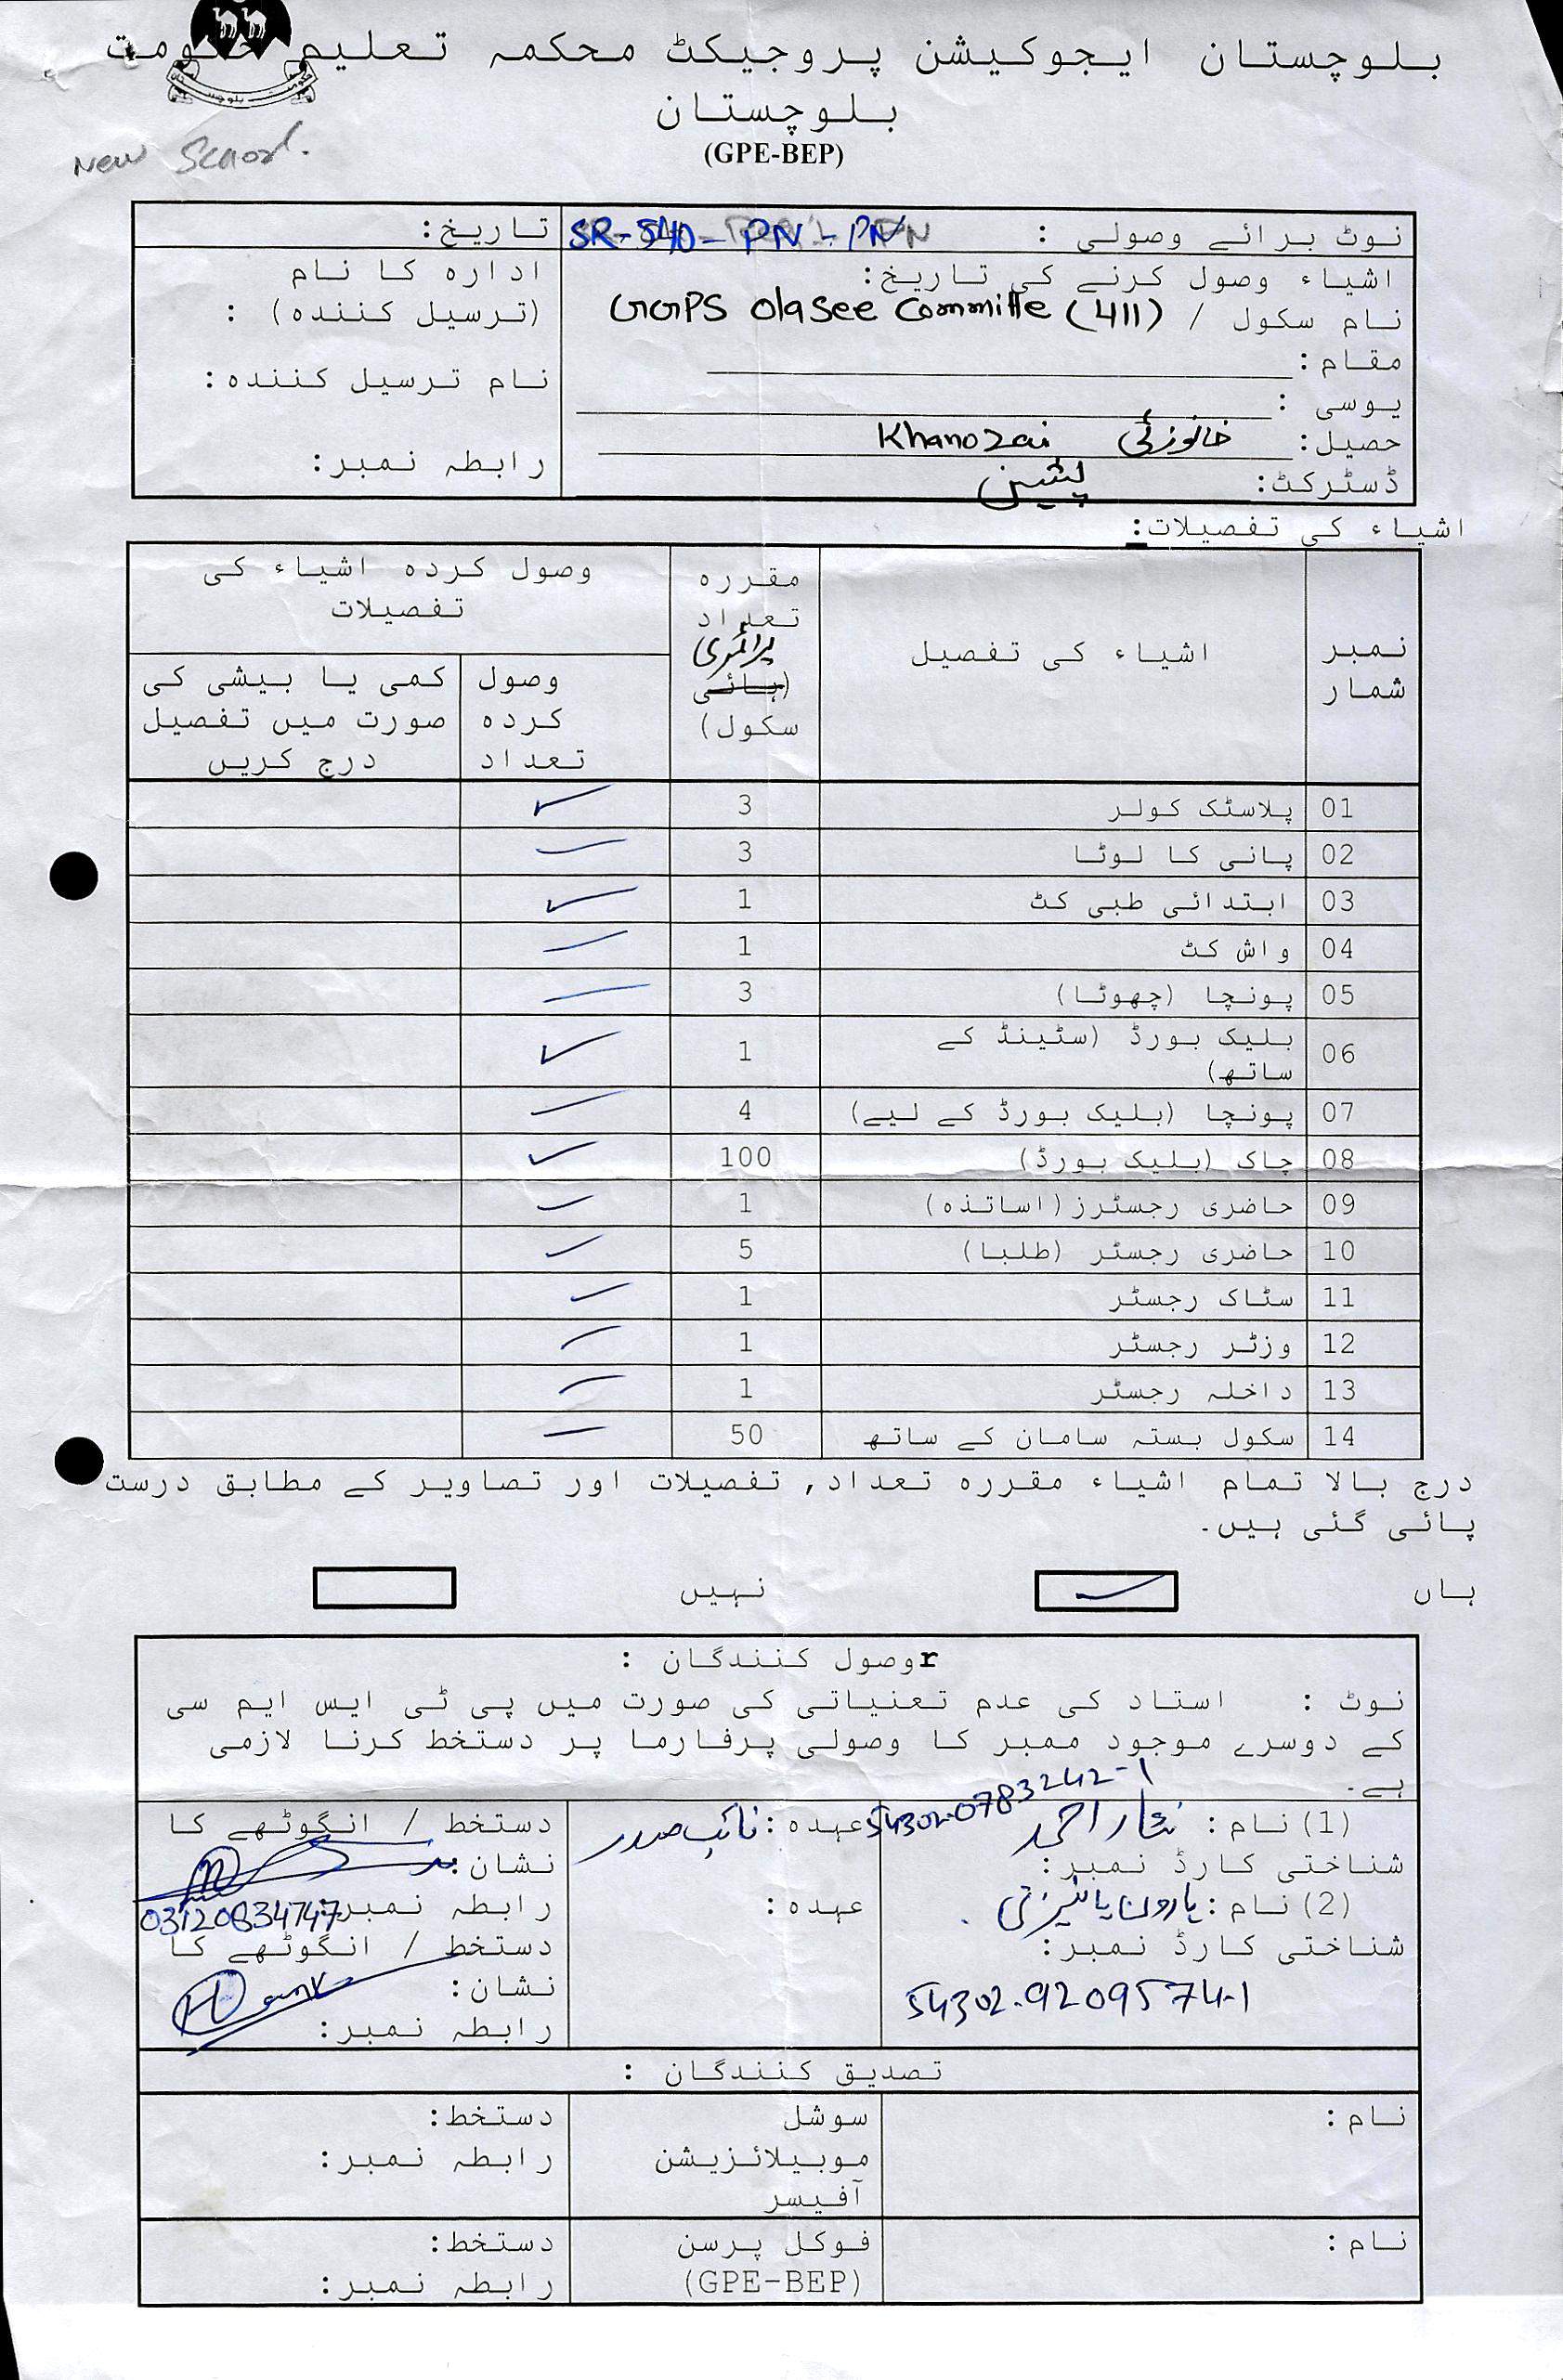 بلوچستان ایجوکیشن پروجیکٹ محکمہ تعلیم حکومت
بلوچستان
(GPE-BEP)
New School.
نوٹ برائے وصولی : SR-540-PN-PN
تاریخ:
اشیاء وصول کرنے کی تاریخ:
نام سکول / GGPS Olasee Committe (411)
مقام:
یوسی :
حصیل: خانوزئی Khanozai
ڈسٹرکٹ: پشین
ادارہ کا نام
(ترسیل کنندہ) :
نام ترسیل کنندہ:
رابطہ نمبر:
اشیاء کی تفصیلات:
نمبر شمار
اشیاء کی تفصیل
مقررہ تعداد پرائمری (ہائی سکول)
وصول کردہ اشیاء کی تفصیلات
وصول کردہ تعداد
کمی یا بیشی کی صورت میں تفصیل درج کریں
01 پلاسٹک کولر 3 ✓
02 پانی کا لوٹا 3
03 ابتدائی طبی کٹ 1 ✓
04 واش کٹ 1
05 پونچا (چھوٹا) 3
06 بلیک بورڈ (سٹینڈ کے ساتھ) 1 ✓
07 پونچا (بلیک بورڈ کے لیے) 4
08 چاک (بلیک بورڈ) 100 ✓
09 حاضری رجسٹرز (اساتذہ) 1 ✓
10 حاضری رجسٹر (طلبا) 5 ✓
11 سٹاک رجسٹر 1 ✓
12 وزٹر رجسٹر 1
13 داخلہ رجسٹر 1
14 سکول بستہ سامان کے ساتھ 50
درج بالا تمام اشیاء مقررہ تعداد, تفصیلات اور تصاویر کے مطابق درست
پائی گئی ہیں۔
ہاں ✓ نہیں
rوصول کنندگان :
نوٹ : استاد کی عدم تعنیاتی کی صورت میں پی ٹی ایس ایم سی
کے دوسرے موجود ممبر کا وصولی پرفارما پر دستخط کرنا لازمی
ہے۔
(1) نام: نثار احمد
شناختی کارڈ نمبر: 54302-0783242-1
عہدہ: نائب صدر
دستخط / انگوٹھے کا
نشان:
رابطہ نمبر: 03120834747
(2) نام: ہارون پانیزئی
شناختی کارڈ نمبر:
54302-9209574-1
عہدہ:
دستخط / انگوٹھے کا
نشان:
رابطہ نمبر:
تصدیق کنندگان :
نام:
سوشل
موبیلائزیشن
آفیسر
دستخط:
رابطہ نمبر:
نام:
فوکل پرسن
(GPE-BEP)
دستخط:
رابطہ نمبر: